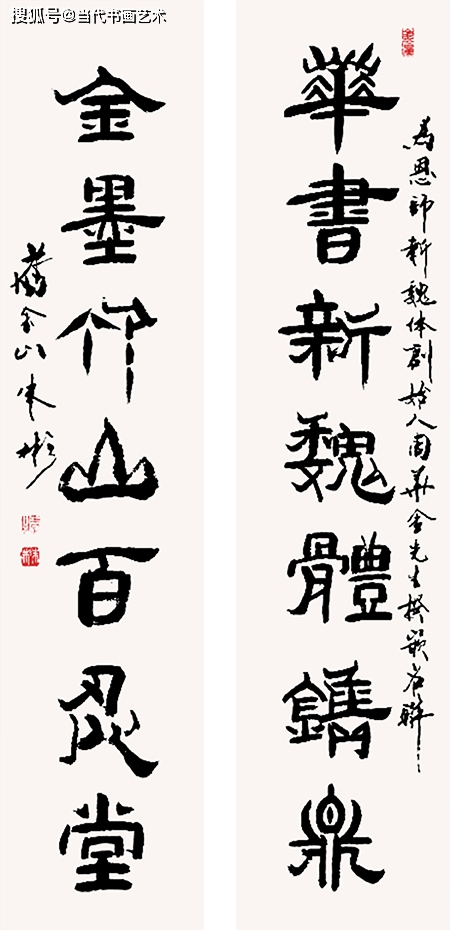 搜狐号@当代书画艺术
為恩師新魏体創始人周華金先生撰嵌名聯
華書新魏體鐫鼎
金墨竹山百忍堂
舊金山朱彬